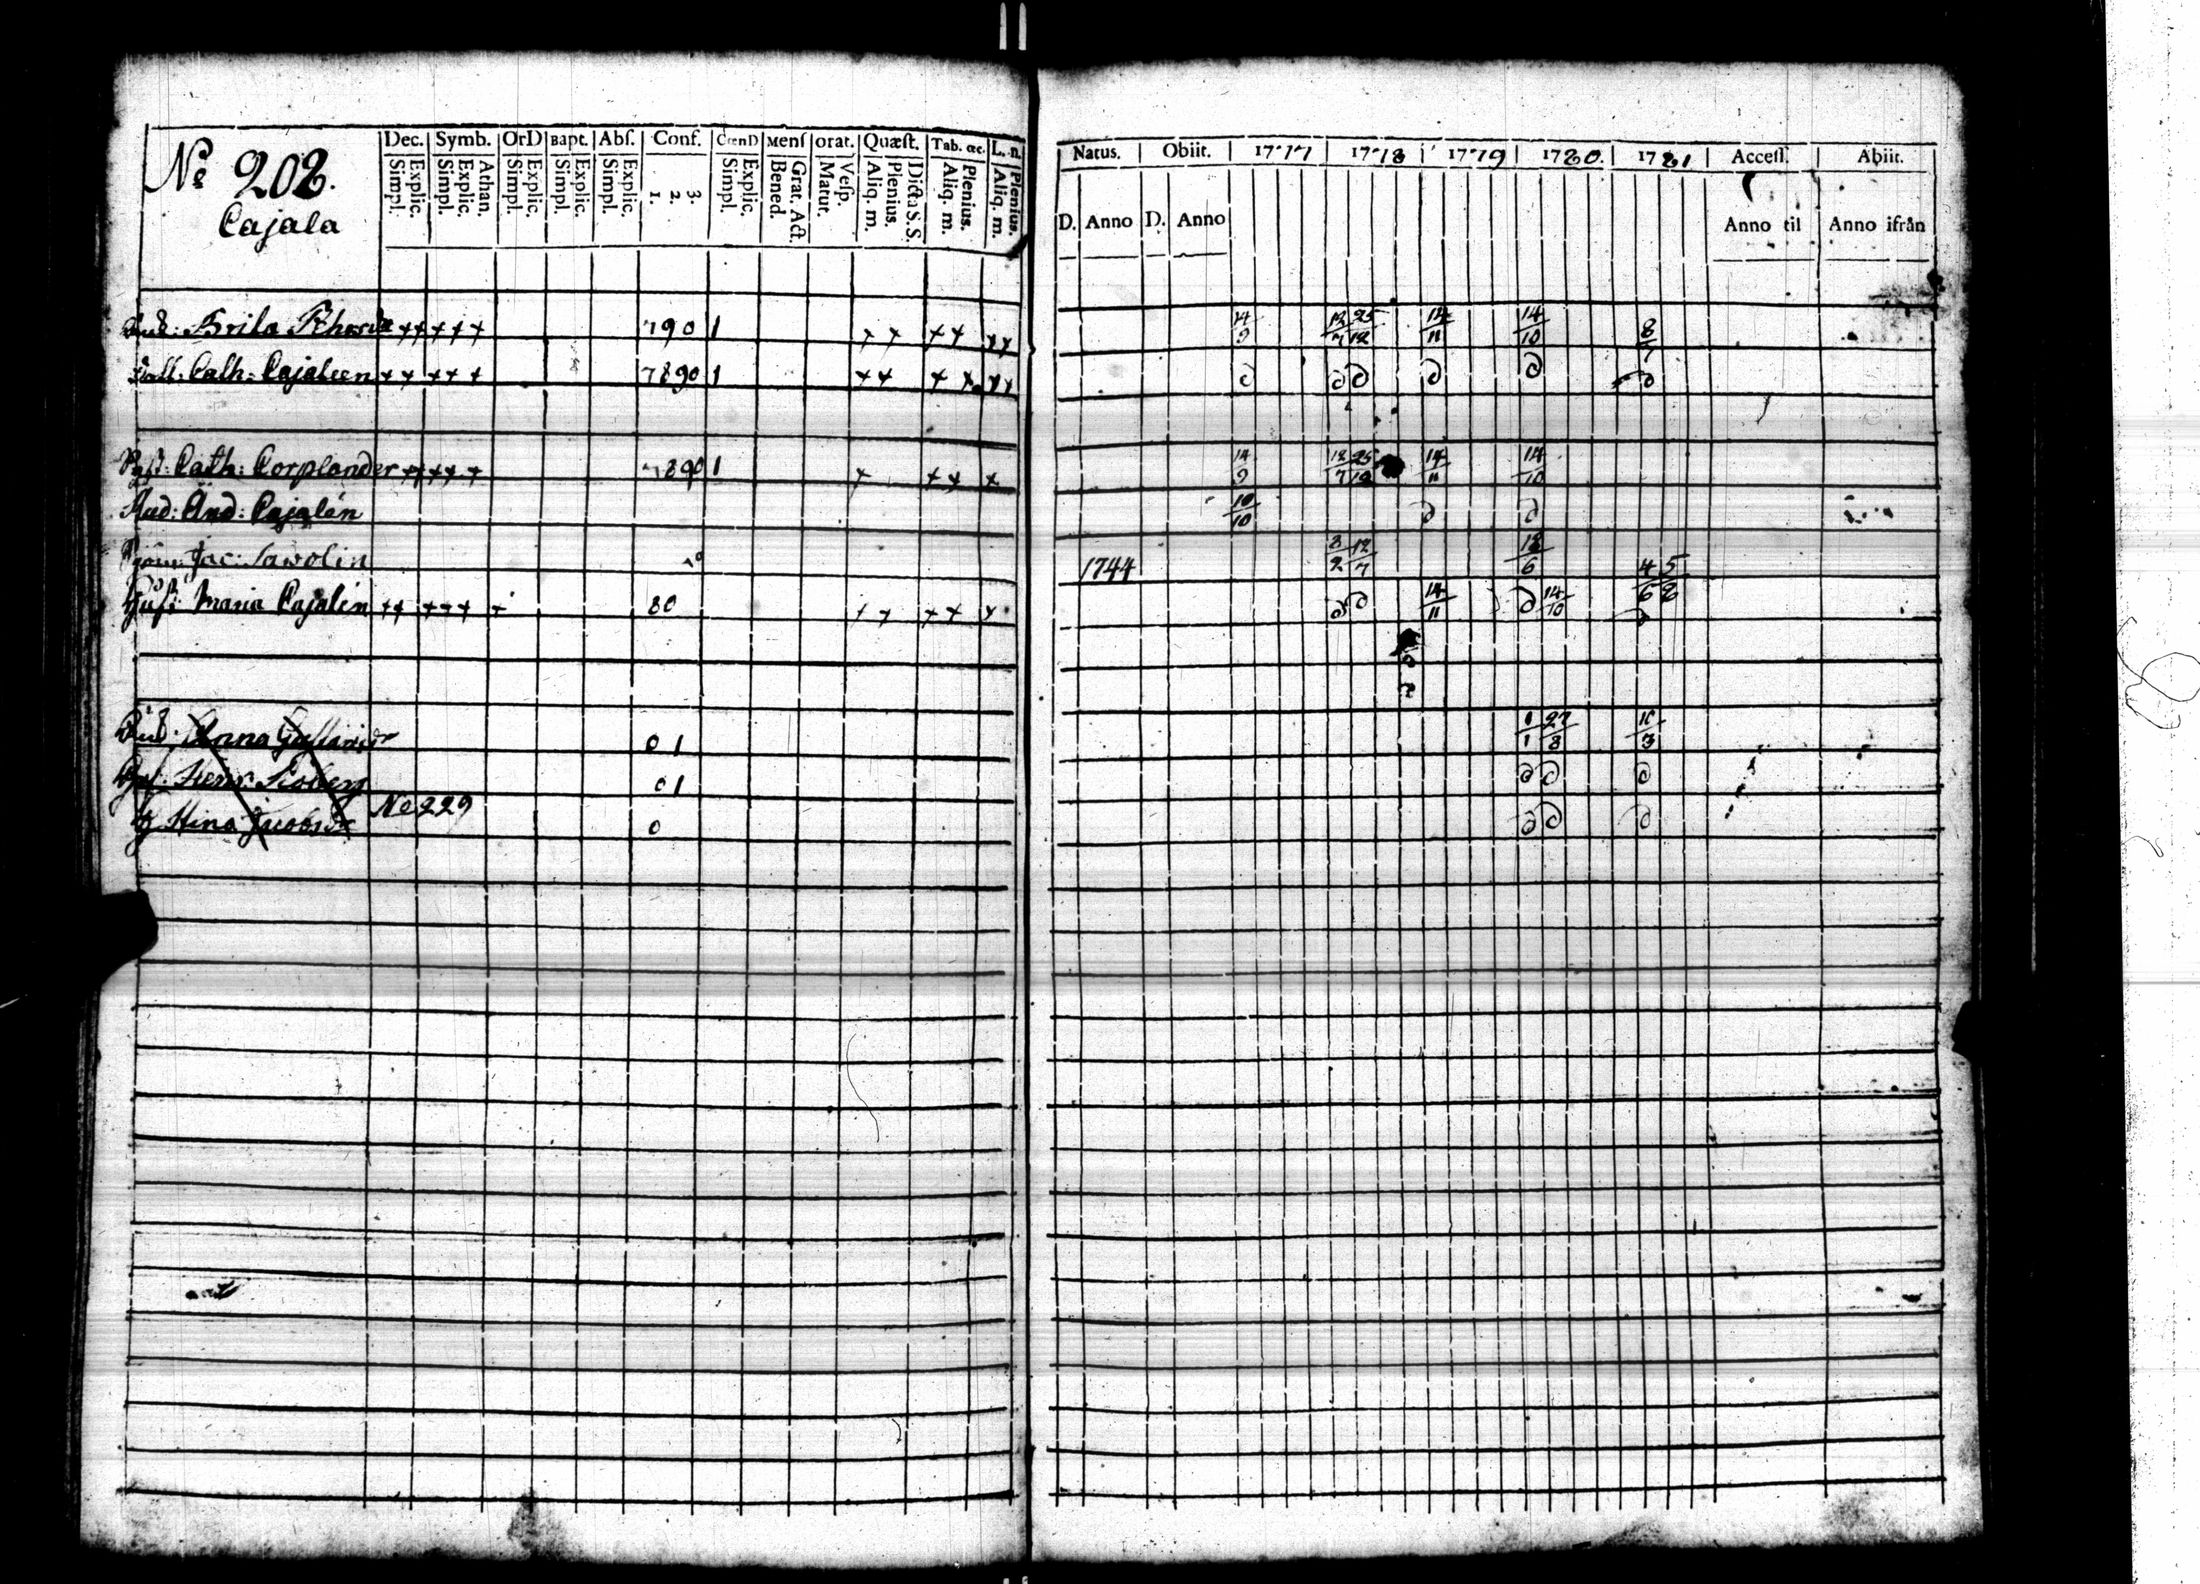 No 208.
Cajala
Dec. Symb. OrD Bapt. Abſ. Conf. CœnD Menſ orat. Quæſt. Tab. œc. L. n.
Simpl. Explic. Simpl. Explic. Athan. Simpl. Explic. Simpl. Explic. Simpl. Explic. 1. 2. 3. Simpl. Explic. Bened. Grat. Act. Matut. Veſp. Aliq. m. Plenius. Dicta S. S. Aliq. m. Plenius. Aliq. m. Plenius.
Natus. Obiit. 1777 1778 1779 1780. 1781 Acceſſ. Abiit.
D. Anno D. Anno Anno til Anno ifrån
Brita ++ +++ 790 1 + + ++ ++ 14/9 12/7 25/12 14/11 14/10 8/7
Cath: Cajaleen ++ +++ 7890 1 ++ ++ ++ d d d d d d
Cath: Corplander ++ +++ 7890 1 + ++ + 14/9 12/7 25/12 14/11 14/10
And: Cajalén 10/10 d d
Jac: Sawolin 1744 12/7 18/6 4/6 5/8
Huſt: Maria Cajalén ++ +++ + 80 + + ++ + d d 14/11 d 14/10 d
Anna 0 1 1/1 27/8 3
Henr: 0 1 d d d
No 229
Stina Jacobsdr 0 d d d